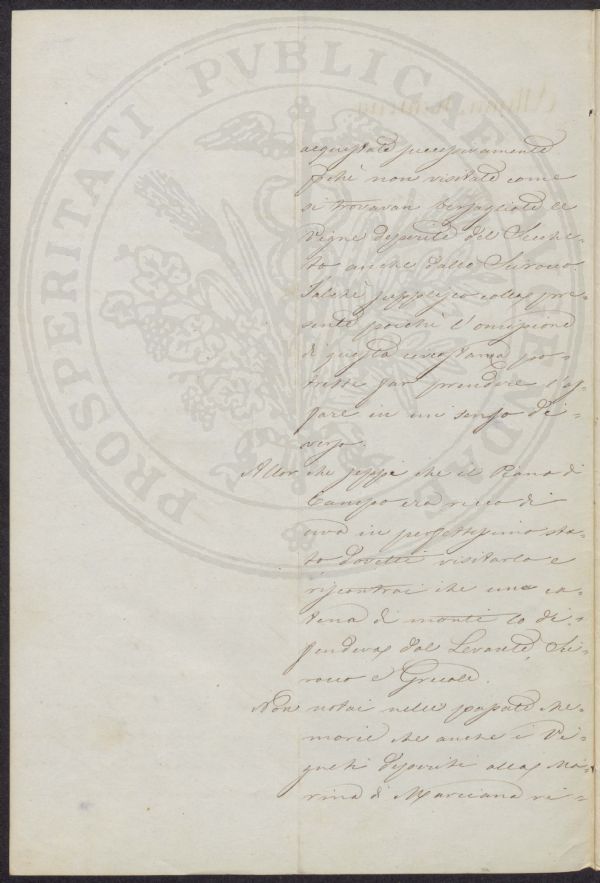 PROSPERITATI PVBLICAE AVGENDAE
acquistate successivamente
perchè non visitate come
si trovavan bersagliate le
Vigne deperite del Secche-
to anche dallo Scirocco.
Talchè supplisco colla pre-
sente poichè l'omissione
di questa circostanza po-
trebbe far prendere l'af-
fare in un senso di-
verso.
Allor che seppi che il Piano di
Campo era ricco di
uva in perfettissimo sta-
to dovetti visitarlo e
riscontrai che una ca-
tena di monti lo di-
fendeva dal Levante, Sci-
rocco e Grecale.
Non notai nelle passate Me-
morie che anche i Vi-
gneti deperiti alla Ma-
rina di Marciana ri-